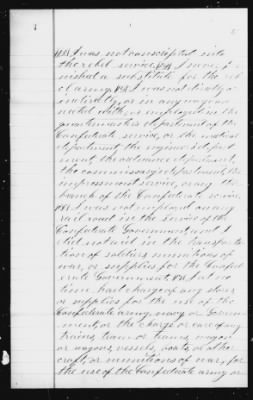 I was not conscripted into
the rebel service. I never fur
nished a substitute for the reb
el army. I was not directly or
indirectly, or in any way con
nected with or employed in the
quartermasters department of the
Confederate service, or the medical
department the engineers depart
ment, the ordinance department,
the commissary department, the
impressment service, or any other
branch of the Confederate service
I was not employed on any
rail road in the service of the
Confederate Government, and I
did not aid in the transporta
tion of soldiers munitions of
war, or supplies for the Confed
erate Government. I at no
time had charge of any stores
or supplies for the use of the
Confederate army navy or Govern-
ment, or the charge or care of any
trains, team or teams, wagon
or wagons, vessels, boats, or other
craft, or munitions of war, for
the use of the Confederate army or